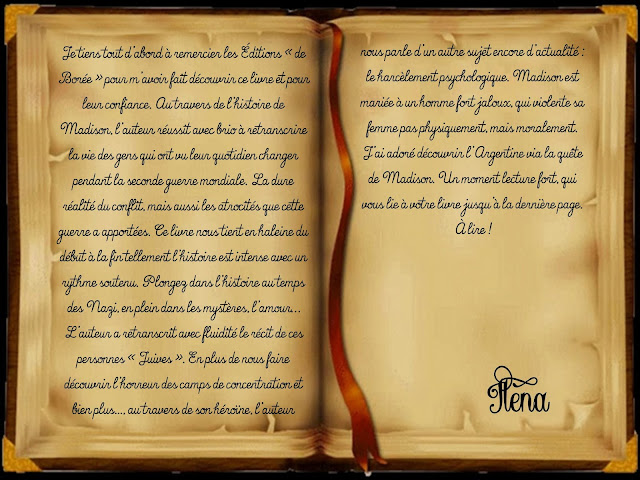 Je tiens tout d'abord à remercier les Éditions « de
Borée » pour m'avoir fait découvrir ce livre et pour
leur confiance. Au travers de l'histoire de
Madison, l'auteur réussit avec brio à retranscrire
la vie des gens qui ont vu leur quotidien changer
pendant la seconde guerre mondiale. La dure
réalité du conflit, mais aussi les atrocités que cette
guerre a apportées. Ce livre nous tient en haleine du
début à la fin tellement l'histoire est intense avec un
rythme soutenu. Plongez dans l'histoire au temps
des Nazi, en plein dans les mystères, l'amour...
L'auteur a retranscrit avec fluidité le récit de ces
personnes « Juives ». En plus de nous faire
découvrir l'horreur des camps de concentration et
bien plus..., au travers de son héroïne, l'auteur
nous parle d'un autre sujet encore d'actualité :
le harcèlement psychologique. Madison est
mariée à un homme fort jaloux, qui violente sa
femme pas physiquement, mais moralement.
J'ai adoré découvrir l'Argentine via la quête
de Madison. Un moment lecture fort, qui
vous lie à votre livre jusqu'à la dernière page.
À lire !